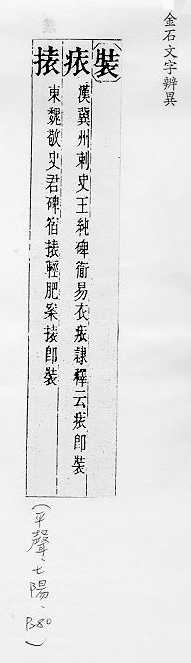 金石文字辨異
(裝)
漢冀州刺史王純碑易衣隸釋云即裝
東魏敬史君碑宿輕肥案即裝
(平聲、七陽、